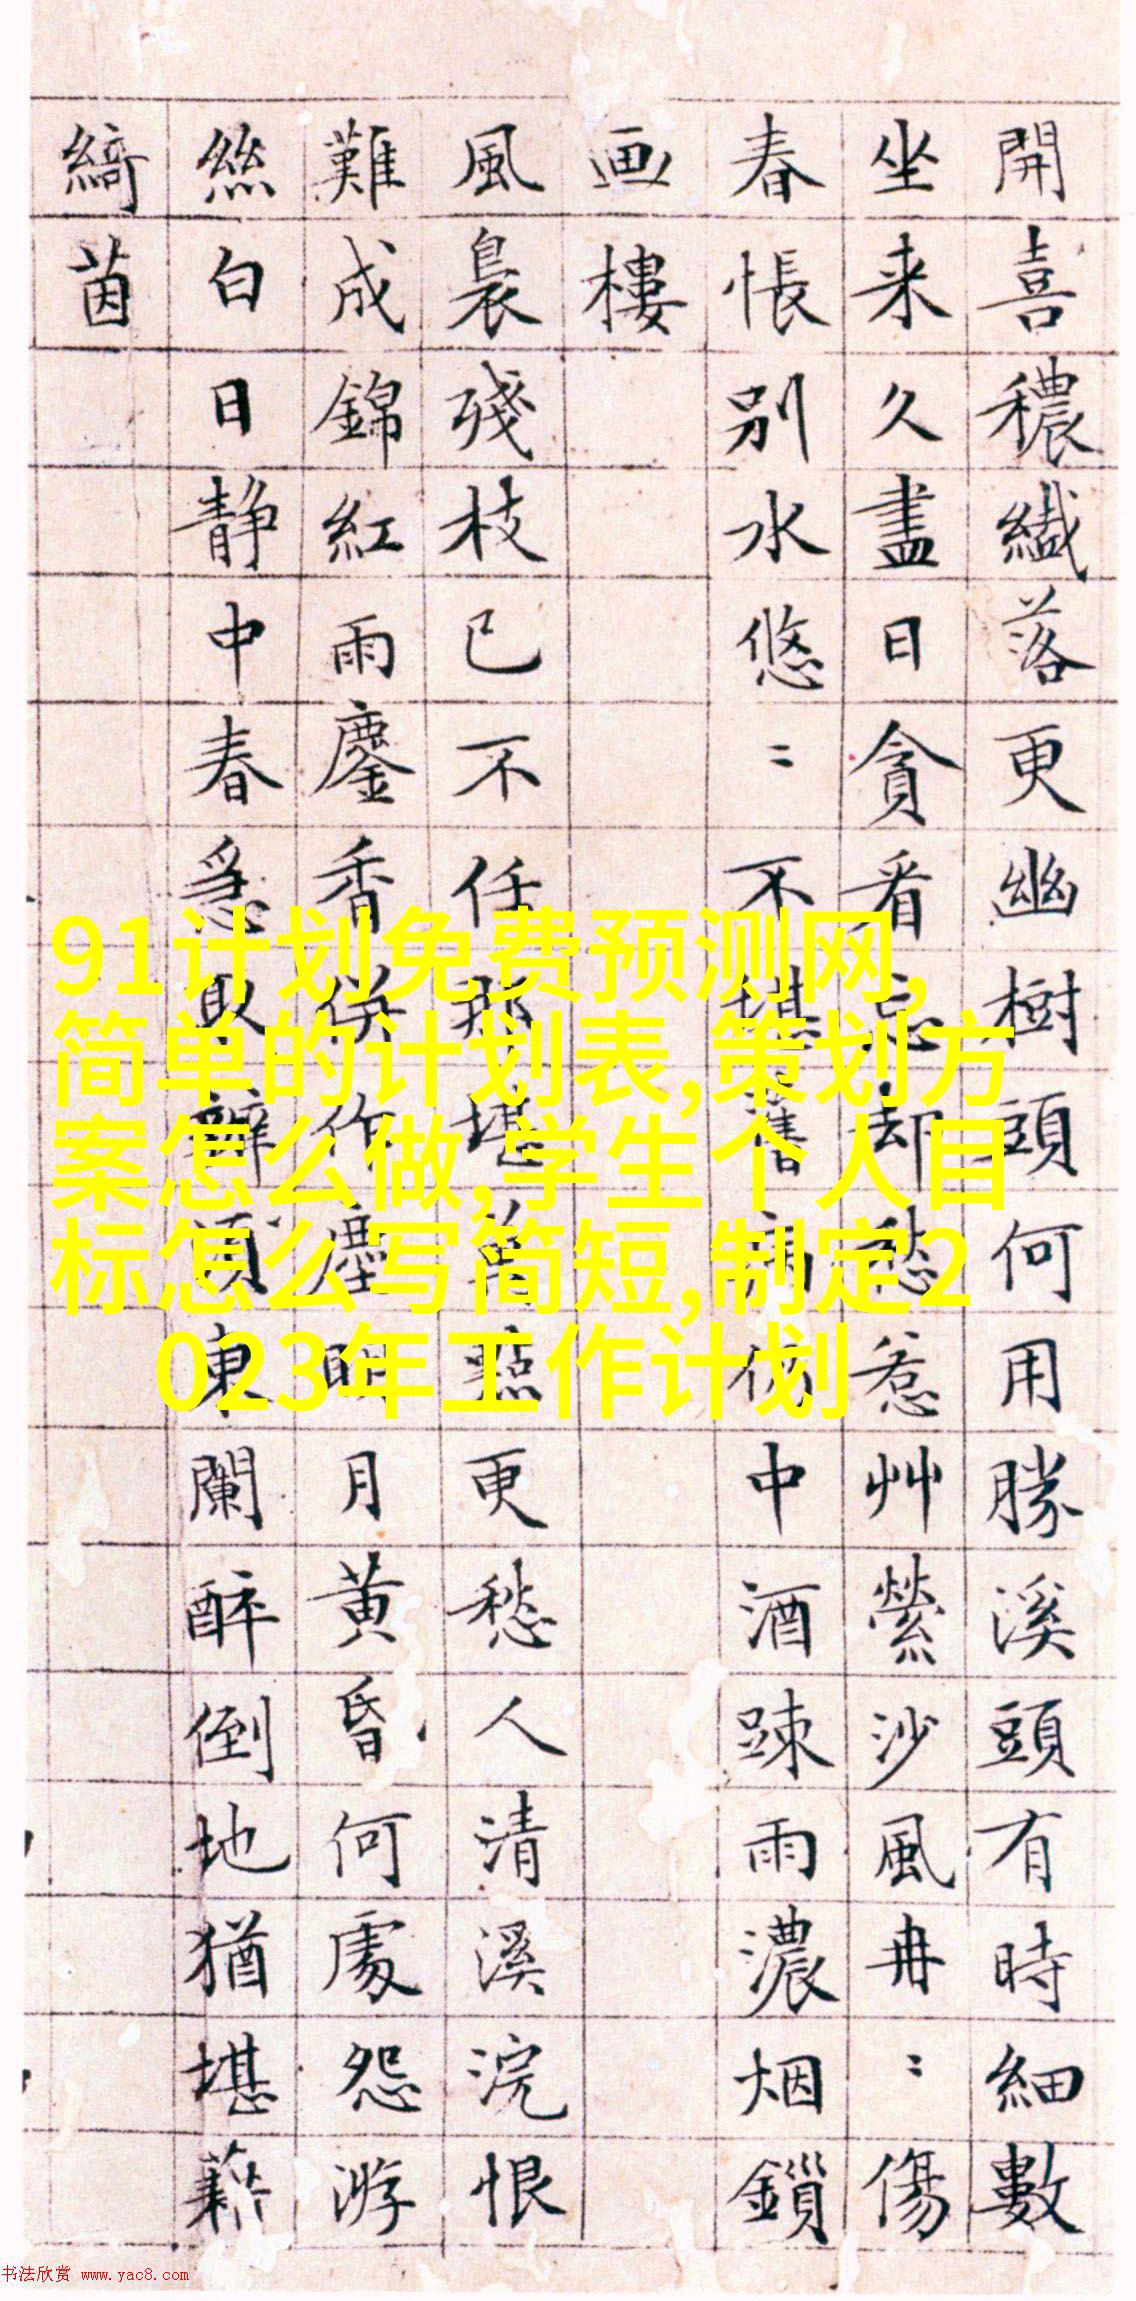 開喜穠纖落更幽樹頭何用勝溪頭有時細數
坐来久盡日貪看忘却愁惹艸縈沙風冉〻傷
春悵別水悠〻不堪舊病仍中酒踈雨濃烟鎖
画樓
風裊殘枝已不任那堪萬點更愁人清溪浣恨
難成錦紅雨鏖香併作塵明月黄昏何處怨游
絲白日静中春急取辦須東闌醉倒地猶堪藉
綺茵
91计划免费预测网,
简单的计划表,策划方
案怎么做,学生个人目
标怎么写简短,制定2
023年工作计划
书法欣赏 www.yac8.com